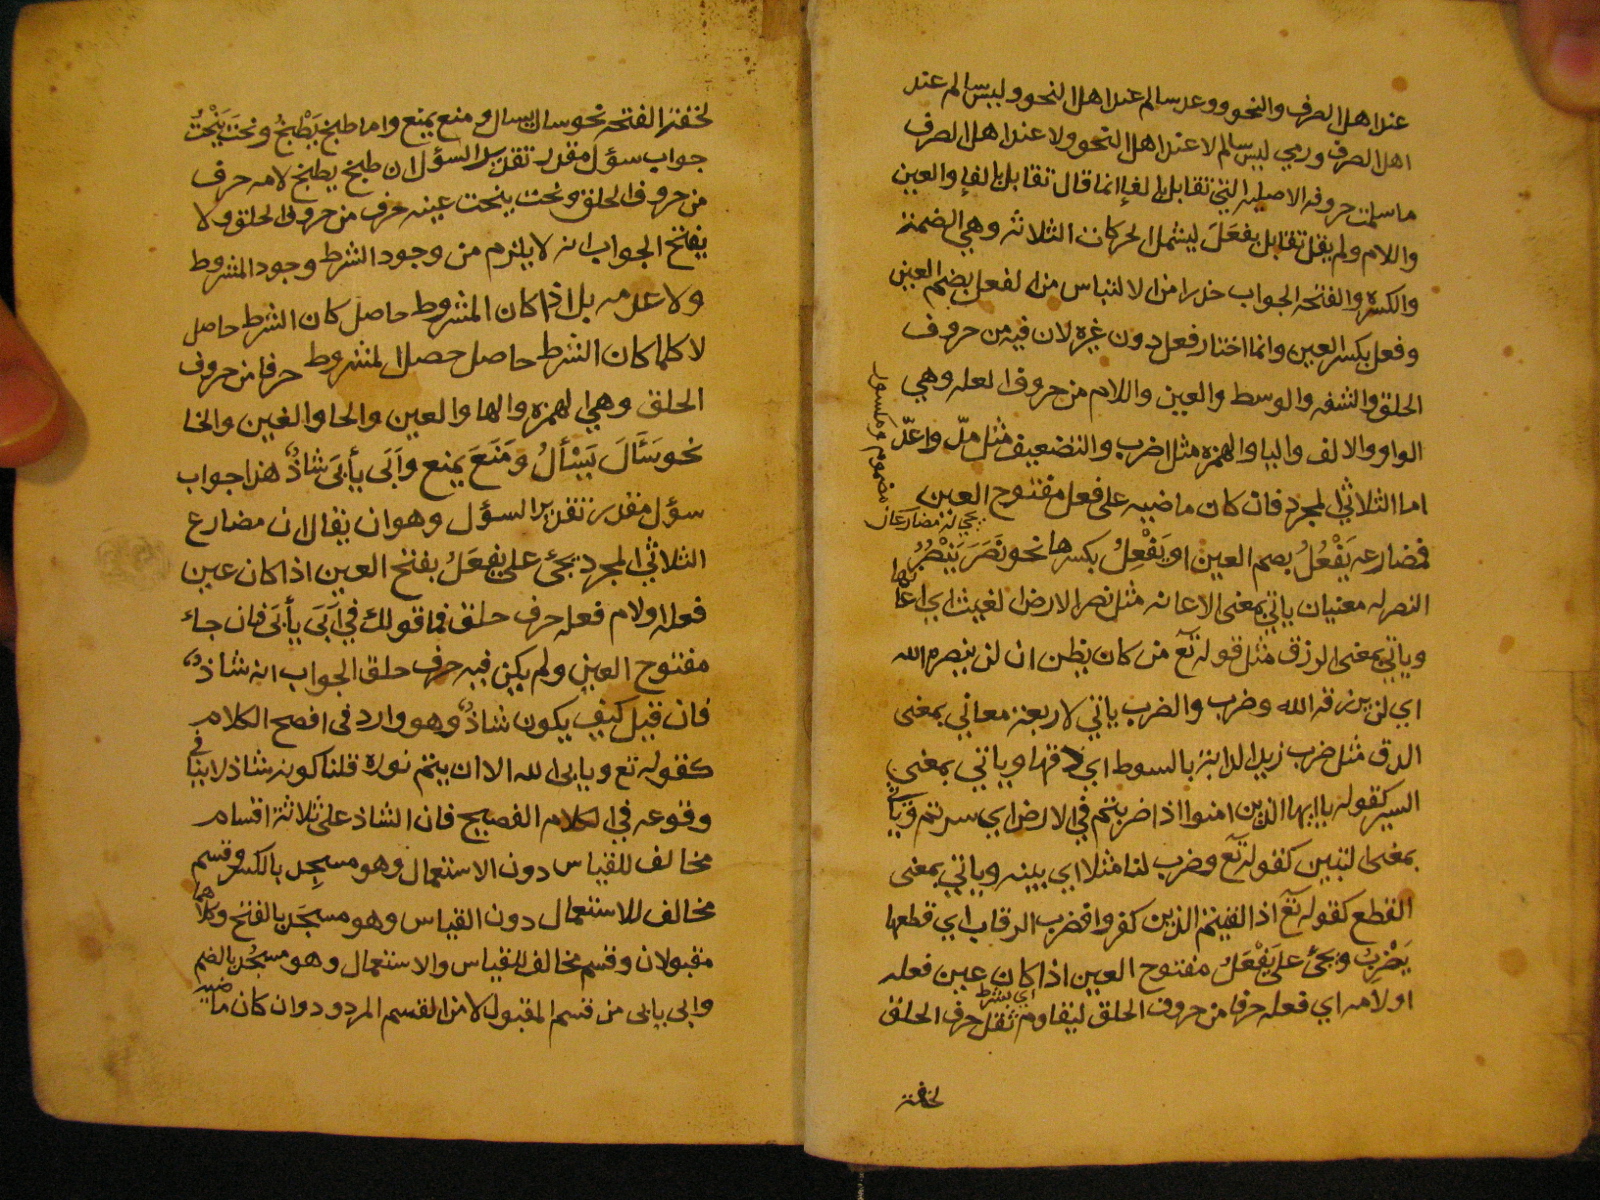 عند اهل الصرف والنحو ووعد سالم عند اهل النحو وليس سالم عند
اهل الصرف ورمي ليس سالم لا عند اهل النحو ولا عند اهل الصرف
ما سلمت حروفه الاصليه التي تقابل بالفا انما قال تقابل بالفا والعين
واللام ولم يقل تقابل بفعل ليشمل الحركات الثلاثه وهي الضمة
والكسره والفتحه الجواب حذرا من الالتباس من الفعل بضم العين
وفعل بكسر العين وانما اختار فعل دون غيره لان فيه من حروف
الحلق والشفه والوسط والعين واللام من حروف العله وهي
الواو والالف واليا والهمزه مثل اضرب والتضعيف مثل ملّ واعدّ
اما الثلاثي المجرد فان كان ماضيه على فعل مفتوح العين
يجي له مضارعان
مضموم ومكسور
فمضارعه يَفْعُلُ بضم العين او يَفْعِلُ بكسرها نحو نَصَرَ يَنْصُرُ
النصر له معنيان ياتي بمعنى الاعانه مثل نصر الارض الغيث اي اعانها
وياتي بمعنى الرزق مثل قوله تع من كان يظن ان لن ينصره الله
اي لن يرزقه الله وضرب والضرب ياتي لاربعة معاني بمعنى
الدق مثل ضرب زيد الدابة بالسوط اي دقها وياتي بمعنى
السير كقوله يا ايها الذين امنوا اذا ضربتم في الارض اي سرتم وياتي
بمعنى التبين كقوله تع وضرب لنا مثلا اي بينه وياتي بمعنى
القطع كقوله تع اذا لقيتم الذين كفروا فضرب الرقاب اي قطعها
يَضْرِبُ ويجئ على يَفْعَلُ مفتوح العين اذا كان عين فعله
اي بشرط
او لامه اي فعله حرفا من حروف الحلق ليقاوم ثقل حرف الحلق
لخفة
لخفة الفتحه نحو سال يسال ومنع يمنع واما طبخ يَطْبخُ ونحت يَنْحِتُ
جواب سؤل مقدر تقدير السؤل ان طبخ يطبخ لامه حرف
من حروف الحلق ونحت ينحت عينه حرف من حروف الحلق ولا
يفتح الجواب انه لا يلزم من وجود الشرط وجود المشروط
ولا عدمه بل اذا كان المشروط حاصل كان الشرط حاصل
لا كلما كان الشرط حاصل حصل المشروط حرفا من حروف
الحلق وهي الهمزه والها والعين والحا والغين والخا
نحو سَئَلَ يَسْألُ وَمَنَعَ يمنع واَبَى يأبَى شاذٌ هذا جواب
سؤل مقدر تقدير السؤل وهو ان يقال ان مضارع
الثلاثي المجرد يجئ على يفعَلُ بفتح العين اذا كان عين
فعله او لام فعله حرف حلق فما قولك في اَبَى يأبَى فان جاء
مفتوح العين ولم يكن فيه حرف حلق الجواب انه شاذٌ
فان قيل كيف يكون شاذٌ وهو وارد فى افصح الكلام
كقوله تع ويابى الله الا ان يتم نوره قلنا كونه شاذ لا ينافي
وقوعه في الكلام الفصيح فان الشاذ على ثلاثة اقسام
مخالف للقياس دون الاستعمال وهو مسجِد بالكسر وقسم
مخالف للاستعمال دون القياس وهو مسجَد بالفتح وكلاهما
مقبولان وقسم مخالف للقياس والاستعمال وهو مسجُد بالضم
وابى يابى من قسم المقبول لا من القسم المردود وان كان ماضيه